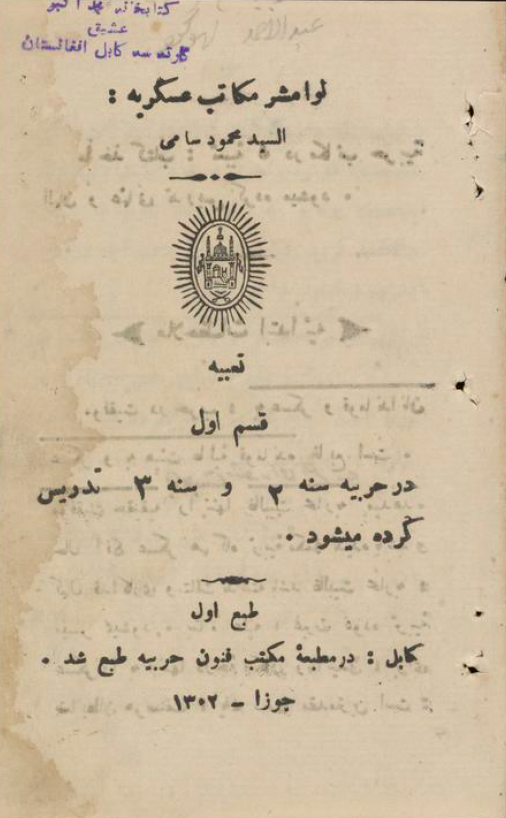 کتابخانه محمد اکبر
عشیق
کارته سه کابل افغانستان
عبدالاحمد
لوامشر مکاتب عسکریه :
السید محمود سامی
تعبیه
قسم اول
در حربیه سنه ۲ و سنه ۳ تدریس
کرده میشود .
طبع اول
کابل : در مطبعهٔ مکتب فنون حربیه طبع شد .
جوزا – ۱۳۰۲